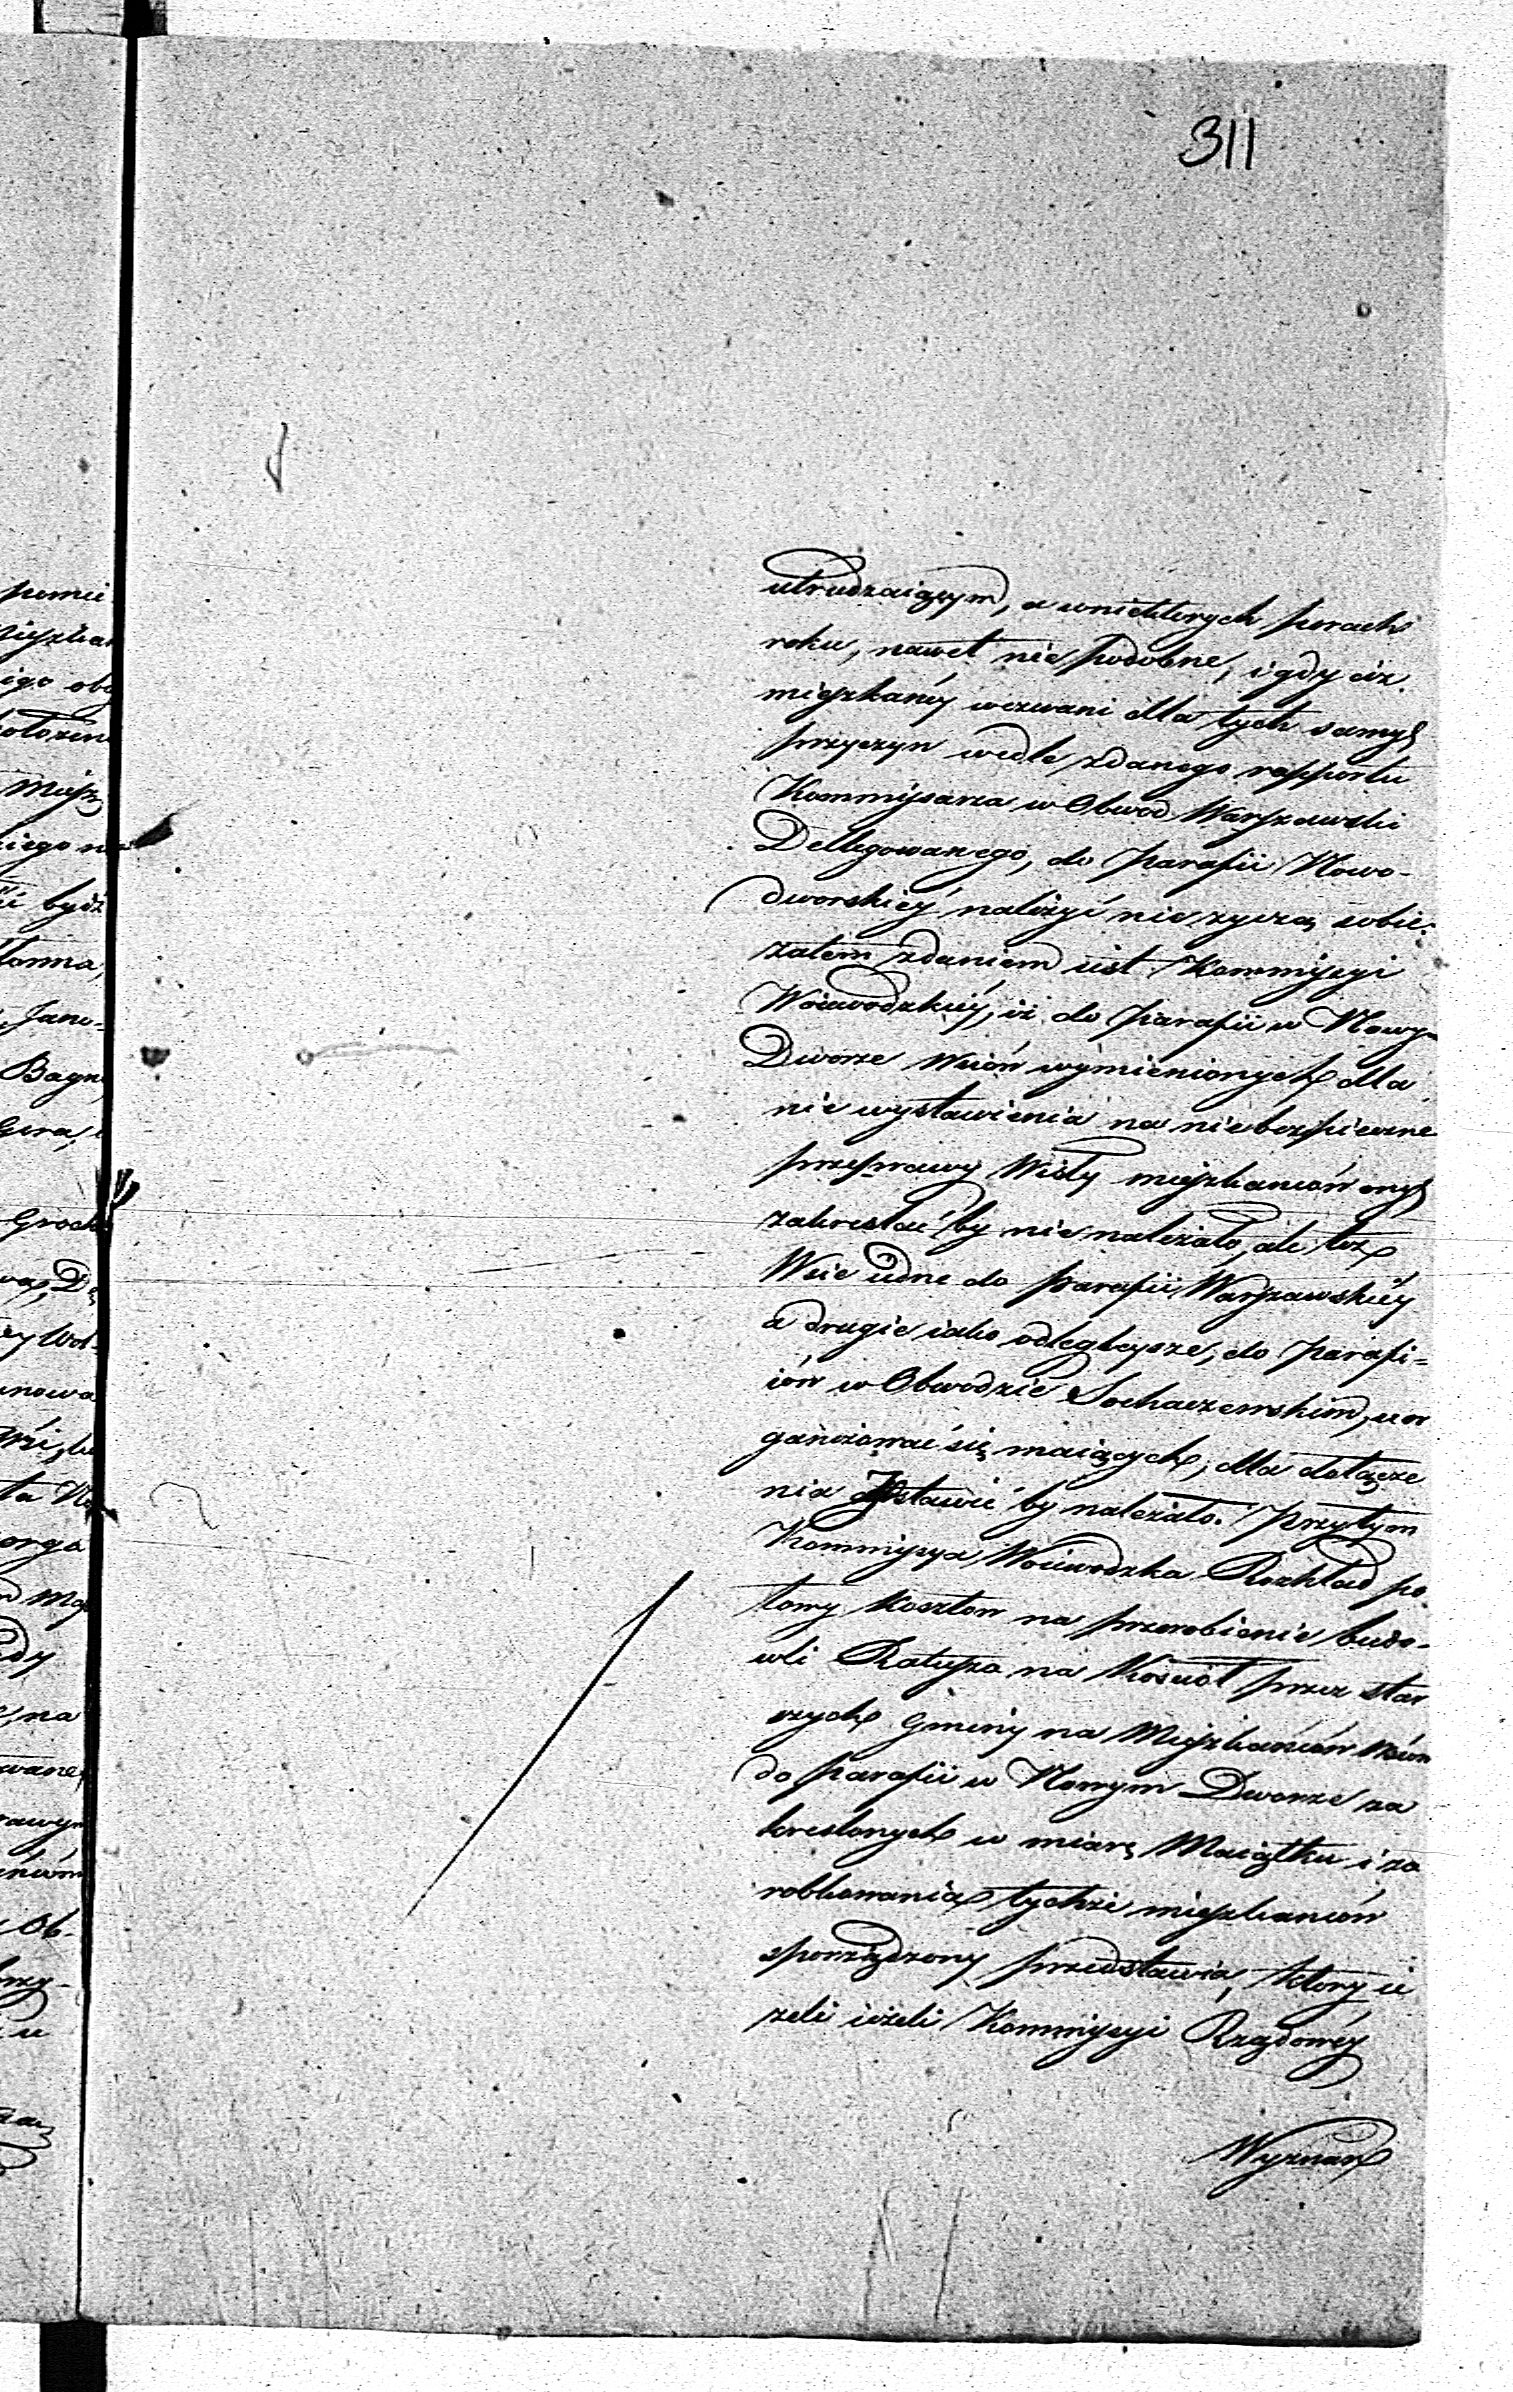 311
utrudzaiącym, a w niektórych porach
roku, nawet nie podobne, i gdy ciż
mieszkańcy wezwani dla tych samych
przyczyn wedle zdanego rapportu
Kommissarza w Obwod Warszawski
Dellegowanego, do Parafii Nowo-
dworskiéy należyć nie życzą sobie:
zatem zdaniem iest Kommissyi
Woiewodzkiéy, iż do Parafii w Nowym
Dworze Wsiów wymienionych dla
nie wystawienia na niebezpieczne
przeprawy Wisły mieszkanców onych
zakreślać by nie należało, ale też
Wsie iedne do Parafii Warszawskiéy
a drugie iako odlegleysze, do Parafi-
iów w Obwodzie Sochaczewskim, uor
ganizować się maiących, dla dołącze
nia zostawić by należało. Przytym
Kommissya Woiewodzka Rozkład po
łowy kosztow na przerobienie budo-
wli Ratusza na Kościół przez star
szych Gminy na Mieszkańców Wsiów
do Parafii w Nowym Dworze za
kreślonych w miarę Maiątku i za
robkowania tychże mieszkanców
sporządzony przedstawia, który ie
żeli ieżeli Kommissyi Rządowéy
Wyznań
pomie
obo
Miesz
bydź
Jano-
Bagno
Góra,
Groch
nowa
orga
na
Ob-